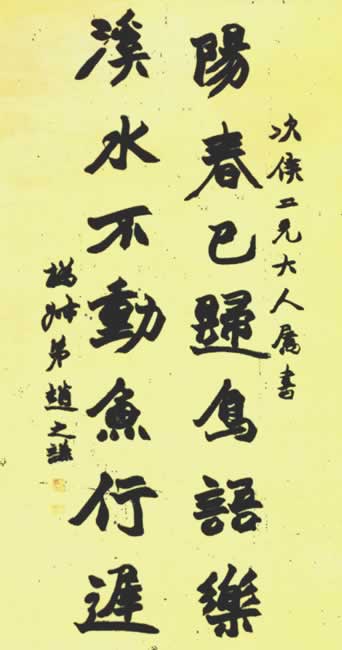 次侯二兄大人属書
陽春已歸鳥語樂
溪水不動魚行遲
撝叔弟趙之謙